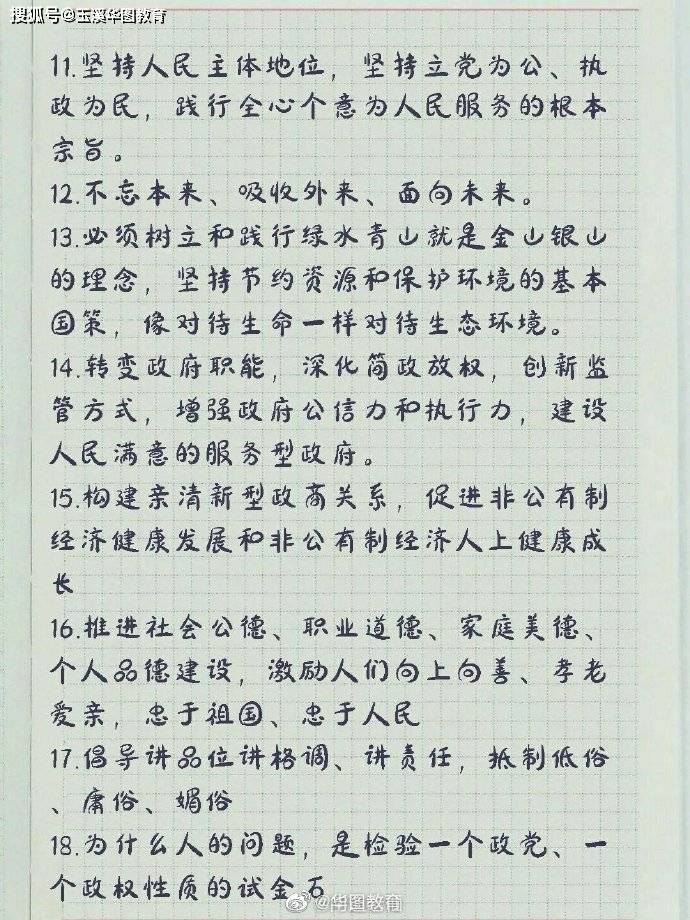 搜狐号@玉溪华图教育
11.坚持人民主体地位，坚持立党为公、执
政为民，践行全心个意为人民服务的根本
宗旨。
12.不忘本来、吸收外来、面向未来。
13.必须树立和践行绿水青山就是金山银山
的理念，坚持节约资源和保护环境的基本
国策，像对待生命一样对待生态环境。
14.转变政府职能，深化简政放权，创新监
管方式，增强政府公信力和执行力，建设
人民满意的服务型政府。
15.构建亲清新型政商关系，促进非公有制
经济健康发展和非公有制经济人上健康成
长
16.推进社会公德、职业道德、家庭美德、
个人品德建设，激励人们向上向善、孝老
爱亲，忠于祖国、忠于人民
17.倡导讲品位讲格调、讲责任，抵制低俗
、庸俗、媚俗
18.为什么人的问题，是检验一个政党、一
个政权性质的试金石
@华图教育